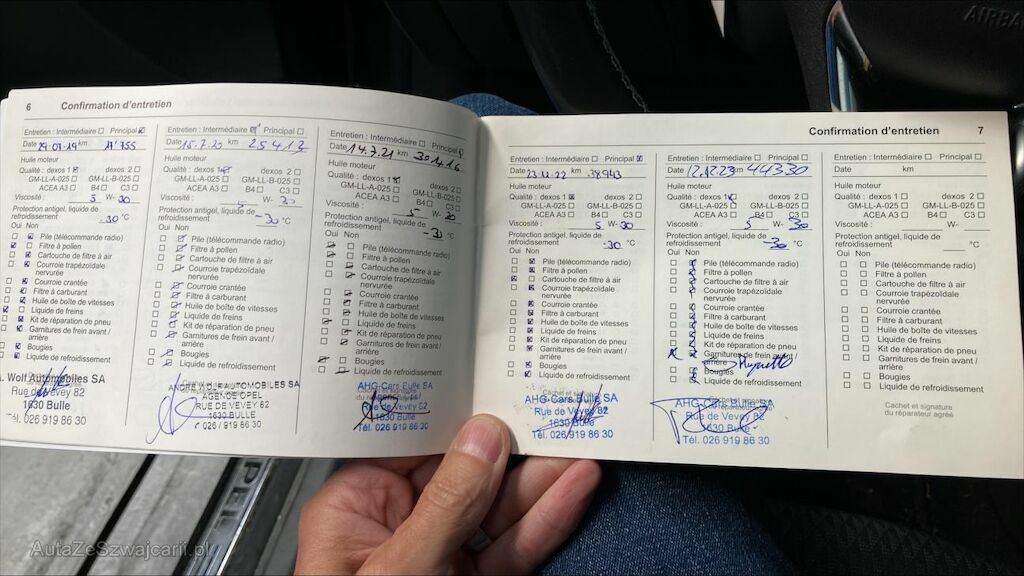 6 Confirmation d'entretien
Entretien : Intermédiaire Principal
Date 29.07.19 km
Huile moteur
Qualité : dexos 1 dexos 2
GM-LL-A-025 GM-LL-B-025
ACEA A3 B4 C3
Viscosité : 5 W- 30
Protection antigel, liquide de
refroidissement -30 °C
Oui Non
Pile (télécommande radio)
Filtre à pollen
Cartouche de filtre à air
Courroie trapézoïdale
nervurée
Courroie crantée
Filtre à carburant
Huile de boîte de vitesses
Liquide de freins
Kit de réparation de pneu
Garnitures de frein avant /
arrière
Bougies
Liquide de refroidissement
Wolf Automobiles SA
Rue de Vevey 82
1630 Bulle
tél. 026/919 86 30
Entretien : Intermédiaire Principal
Date 15.7.20 km 25413
Huile moteur
Qualité : dexos 1 dexos 2
GM-LL-A-025 GM-LL-B-025
ACEA A3 B4 C3
Viscosité : 5 W- 30
Protection antigel, liquide de
refroidissement -30 °C
Oui Non
Pile (télécommande radio)
Filtre à pollen
Cartouche de filtre à air
Courroie trapézoïdale
nervurée
Courroie crantée
Filtre à carburant
Huile de boîte de vitesses
Liquide de freins
Kit de réparation de pneu
Garnitures de frein avant /
arrière
Bougies
Liquide de refroidissement
ANDRE WOLF AUTOMOBILES SA
AGENCE OPEL
RUE DE VEVEY 82
1630 BULLE
026/919 86 30
Entretien : Intermédiaire Principal
Date 14.7.21 km 30416
Huile moteur
Qualité : dexos 1 dexos 2
GM-LL-A-025 GM-LL-B-025
ACEA A3 B4 C3
Viscosité : 5 W- 30
Protection antigel, liquide de
refroidissement -30 °C
Oui Non
Pile (télécommande radio)
Filtre à pollen
Cartouche de filtre à air
Courroie trapézoïdale
nervurée
Courroie crantée
Filtre à carburant
Huile de boîte de vitesses
Liquide de freins
Kit de réparation de pneu
Garnitures de frein avant /
arrière
Bougies
Liquide de refroidissement
AHG-Cars Bulle SA
Rue de Vevey 82
1630 Bulle
Tél. 026 919 86 30
Confirmation d'entretien 7
Entretien : Intermédiaire Principal
Date 23.11.22 km 38943
Huile moteur
Qualité : dexos 1 dexos 2
GM-LL-A-025 GM-LL-B-025
ACEA A3 B4 C3
Viscosité : 5 W- 30
Protection antigel, liquide de
refroidissement -30 °C
Oui Non
Pile (télécommande radio)
Filtre à pollen
Cartouche de filtre à air
Courroie trapézoïdale
nervurée
Courroie crantée
Filtre à carburant
Huile de boîte de vitesses
Liquide de freins
Kit de réparation de pneu
Garnitures de frein avant /
arrière
Bougies
Liquide de refroidissement
Cachet et
AHG-Cars Bulle SA
Rue de Vevey 82
1630 Bulle
Tél. 026 919 86 30
Entretien : Intermédiaire Principal
Date 12.12.23 km 44330
Huile moteur
Qualité : dexos 1 dexos 2
GM-LL-A-025 GM-LL-B-025
ACEA A3 B4 C3
Viscosité : 5 W- 30
Protection antigel, liquide de
refroidissement -30 °C
Oui Non
Pile (télécommande radio)
Filtre à pollen
Cartouche de filtre à air
Courroie trapézoïdale
nervurée
Courroie crantée
Filtre à carburant
Huile de boîte de vitesses
Liquide de freins
Kit de réparation de pneu
Garnitures de frein avant /
arrière
Bougies
Liquide de refroidissement
AHG-Cars Bulle SA
Rue de Vevey 82
1630 Bulle
Tél. 026 919 86 30
Entretien : Intermédiaire Principal
Date km
Huile moteur
Qualité : dexos 1 dexos 2
GM-LL-A-025 GM-LL-B-025
ACEA A3 B4 C3
Viscosité : W-
Protection antigel, liquide de
refroidissement °C
Oui Non
Pile (télécommande radio)
Filtre à pollen
Cartouche de filtre à air
Courroie trapézoïdale
nervurée
Courroie crantée
Filtre à carburant
Huile de boîte de vitesses
Liquide de freins
Kit de réparation de pneu
Garnitures de frein avant /
arrière
Bougies
Liquide de refroidissement
Cachet et signature
du réparateur agréé
AIRBA
AutaZeSzwajcarii.pl